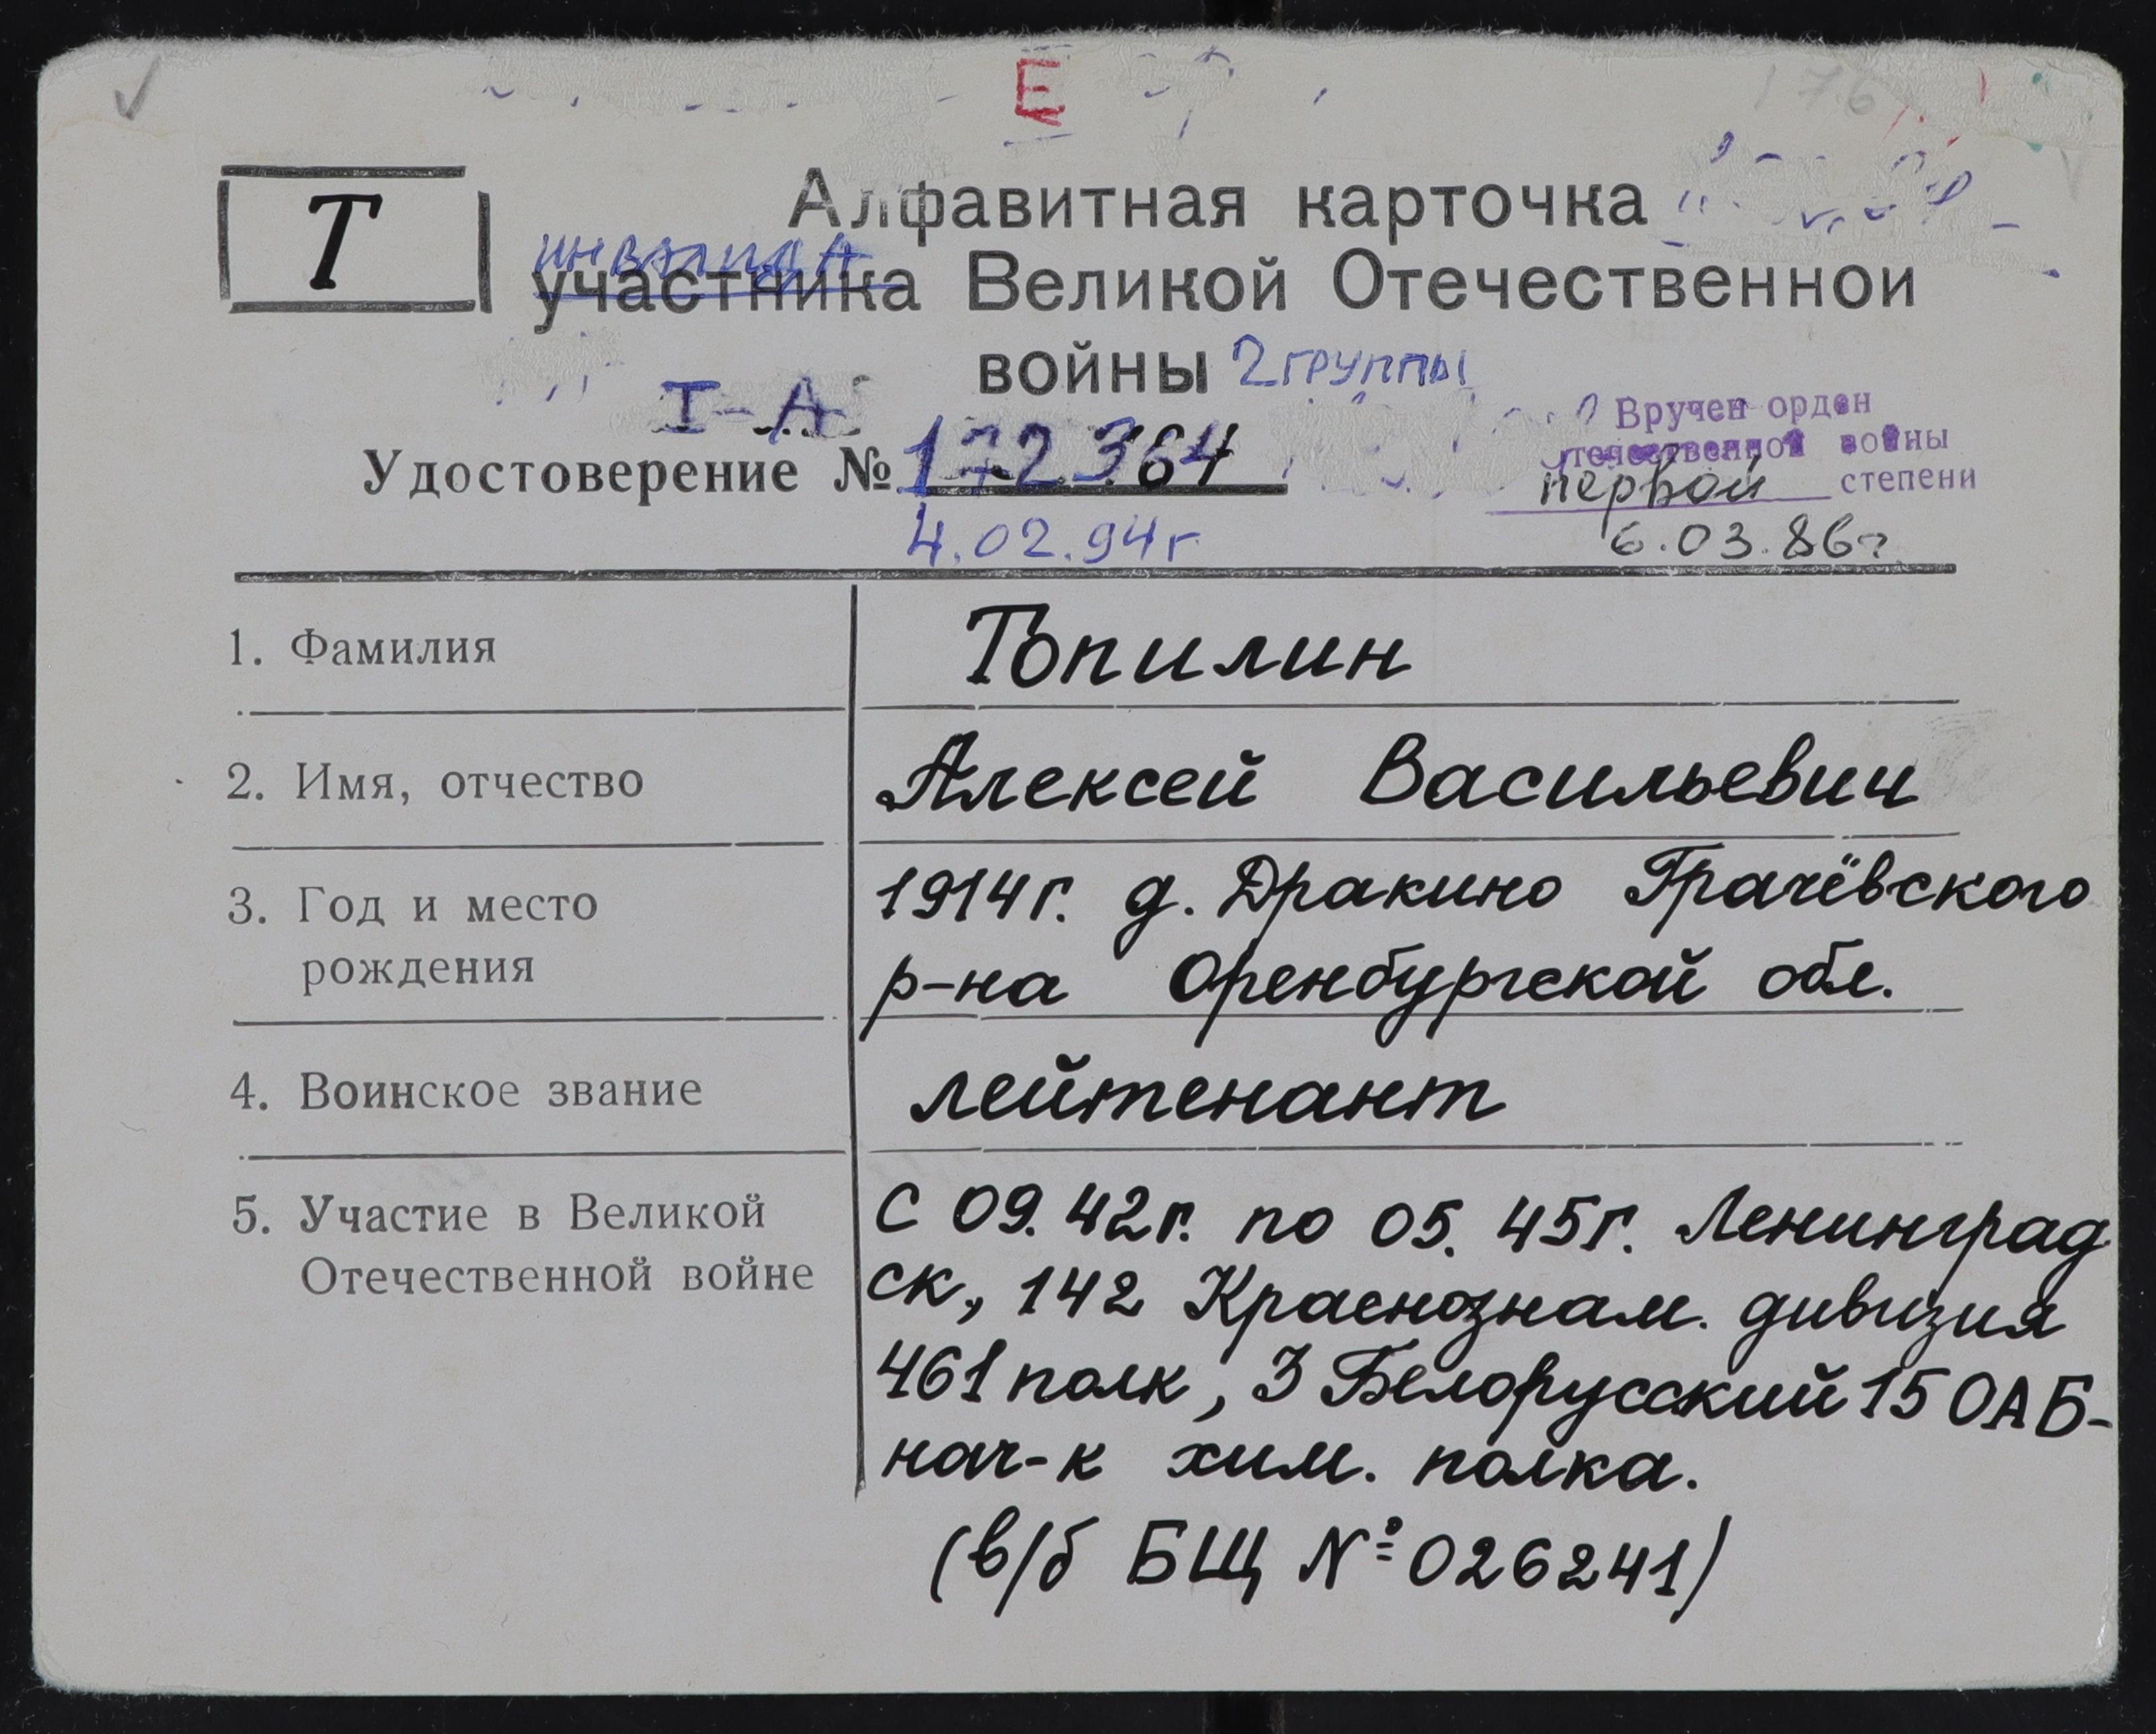 Е
176
Т
Алфавитная карточка
инвалида
участника Великой Отечественной
войны 2 группы
I-А
Удостоверение № 172364
4.02.94г
Вручен орден
Отечественной войны
первой степени
6.03.86г
1. Фамилия
Топилин
2. Имя, отчество
Алексей Васильевич
3. Год и место
рождения
1914г. д. Дракино Грачёвского
р-на Оренбургской обл.
4. Воинское звание
лейтенант
5. Участие в Великой
Отечественной войне
С 09.42г. по 05.45г. Ленинград
ск, 142 Краснознам. дивизия
461 полк, 3 Белорусский 15 ОАБ-
нач-к хим. полка.
(в/б БЩ № 026241)